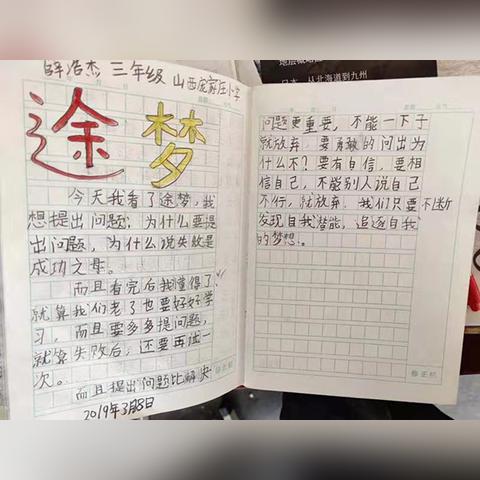 薛浩杰 三年级 山西庞家庄小学
途梦
今天我看了途梦，我
想提出问题：为什么要提
出问题，为什么说失败是
成功之母。
而且看完后我懂得了
就算我们老了也要好好学
习，而且要多多提问题，
就算失败后，还要再试一
次。
而且提出问题比解决
2019年3月8日
问题更重要，不能一下子
就放弃，要勇敢的问出为
什么不？要有自信，要相
信自己，不能别人说自己
不行，就放弃。我们只要不断
发现自我潜能，追逐自我
的梦想。
日本，从北海道到九州